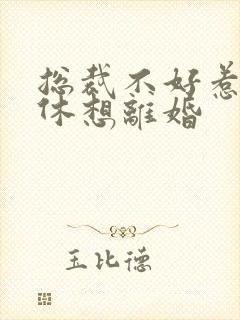 总裁不好惹
休想離婚
玉比德